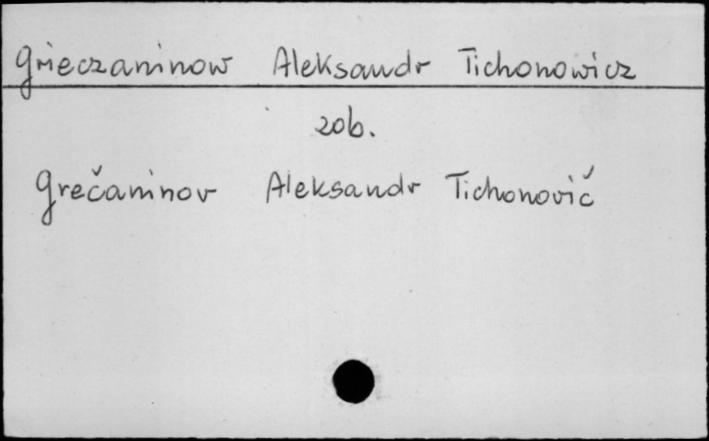 Grieczaninow Aleksandr Tichonowicz
zob.
Grečaninov Aleksandr Tichonovič